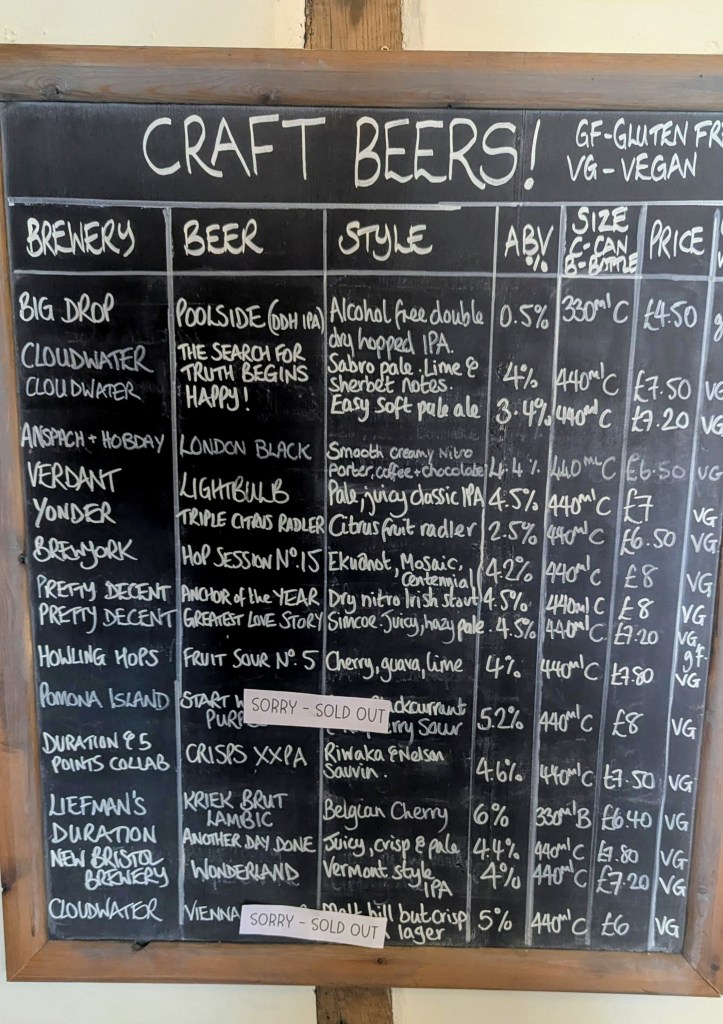 CRAFT BEERS!
GF-GLUTEN FR
VG-VEGAN
BREWERY BEER STYLE ABV % SIZE C-CAN B-BOTTLE PRICE
BIG DROP POOLSIDE (DDH IPA) Alcohol free double 0.5% 330ml C £4.50 g
dry hopped IPA.
CLOUDWATER THE SEARCH FOR Sabro pale. Lime & 4% 440ml C £7.50 VG
TRUTH BEGINS sherbet notes.
CLOUDWATER HAPPY! Easy Soft pale ale 3.4% 440ml C £7.20 VG
ANSPACH + HOBDAY LONDON BLACK Smooth creamy Nitro 4.4% 440ml C £6.50 VG
porter, coffee + chocolate
VERDANT LIGHTBULB Pale, juicy classic IPA 4.5% 440ml C £7 VG
YONDER TRIPLE CITRUS RADLER Citrus fruit radler 2.5% 440ml C £6.50 VG
BREWYORK HOP SESSION No.15 Ekuanot, Mosaic, 4.2% 440ml C £8 VG
Centennial
PRETTY DECENT ANCHOR of the YEAR Dry nitro Irish stout 4.5% 440ml C £8 VG
PRETTY DECENT GREATEST LOVE STORY Simcoe. Juicy, hazy pale. 4.5% 440ml C £7.20 VG, gf.
HOWLING HOPS FRUIT SOUR No. 5 Cherry, guava, lime 4% 440ml C £7.80 VG
POMONA ISLAND START W SORRY - SOLD OUT ackcurrant 5.2% 440ml C £8 VG
PURP rry Sour
DURATION & 5 CRISPS XXPA Riwaka & Nelson 4.6% 440ml C £7.50 VG
POINTS COLLAB Sauvin.
LIEFMAN'S KRIEK BRUT Belgian Cherry 6% 330ml B £6.40 VG
LAMBIC
DURATION ANOTHER DAY DONE Juicy, crisp & pale 4.4% 440ml C £7.80 VG
NEW BRISTOL WONDERLAND Vermont style 4% 440ml C £7.20 VG
BREWERY IPA
CLOUDWATER VIENNA SORRY - SOLD OUT but crisp 5% 440ml C £6 VG
lager